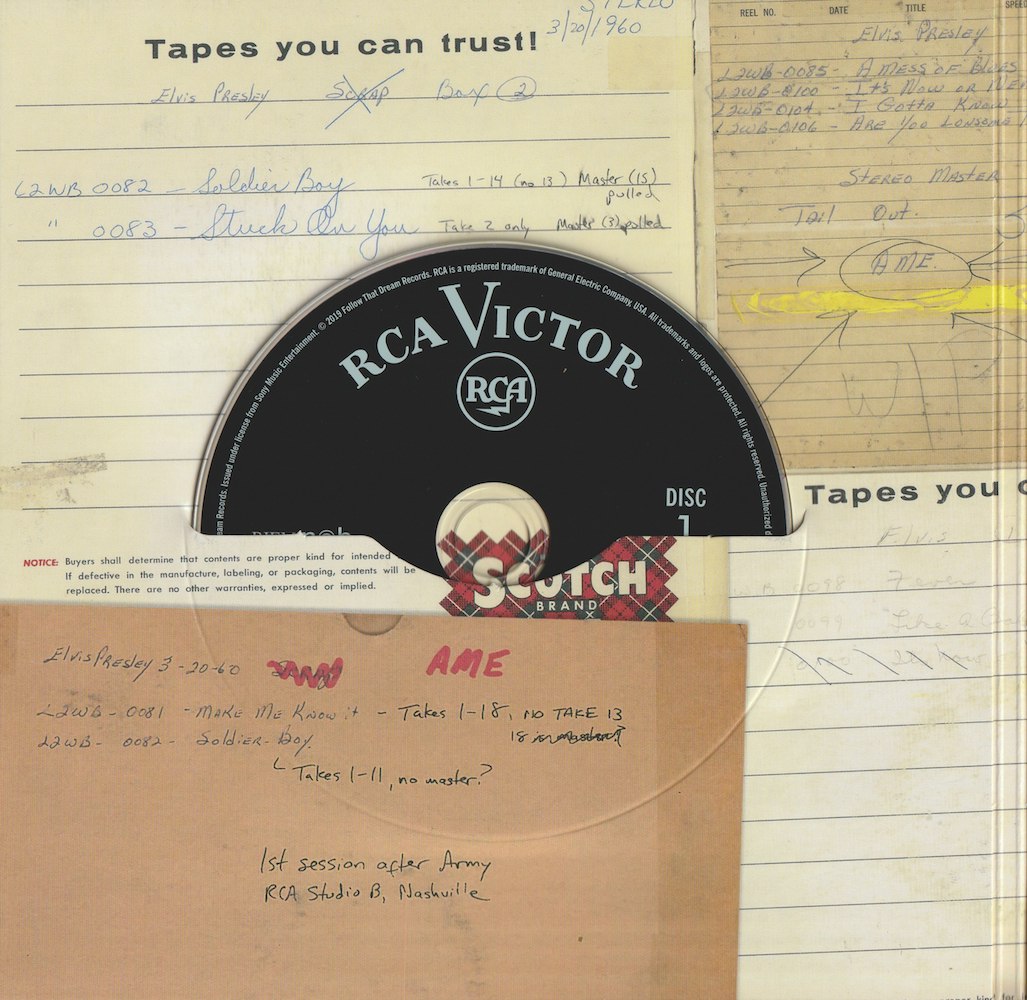 STEREO
3/20/1960
Tapes you can trust!
Elvis Presley Scrap Box 2
L2WB 0082 – Soldier Boy Takes 1-14 (no 13) Master (15) pulled
" 0083 – Stuck On You Take 2 only Master (3) pulled
REEL NO. DATE TITLE SPEED
Elvis Presley
L2WB-0085 - A Mess of Blues
L2WB-0100 - It's Now or
L2WB-0104 - I Gotta Know
L2WB-0106 - Are You Lonesome
Stereo Master
Tail Out.
AME.
Dream Records. Issued under license from Sony Music Entertainment. © 2019 Follow That Dream Records. RCA is a registered trademark of General Electric Company, USA. All trademarks and logos are protected. All rights reserved. Unauthorized
RCA VICTOR
RCA
DISC
1
Tapes you
Elvis
0098 Fever
0099 Like a
NOTICE: Buyers shall determine that contents are proper kind for intended
If defective in the manufacture, labeling, or packaging, contents will be
replaced. There are no other warranties, expressed or implied.
SCOTCH
BRAND
Elvis Presley 3-20-60 AME
L2WB-0081 - Make Me Know it - Takes 1-18, NO TAKE 13
18 is master?
L2WB-0082- Soldier-Boy.
Takes 1-11, no master?
1st session after Army
RCA Studio B, Nashville